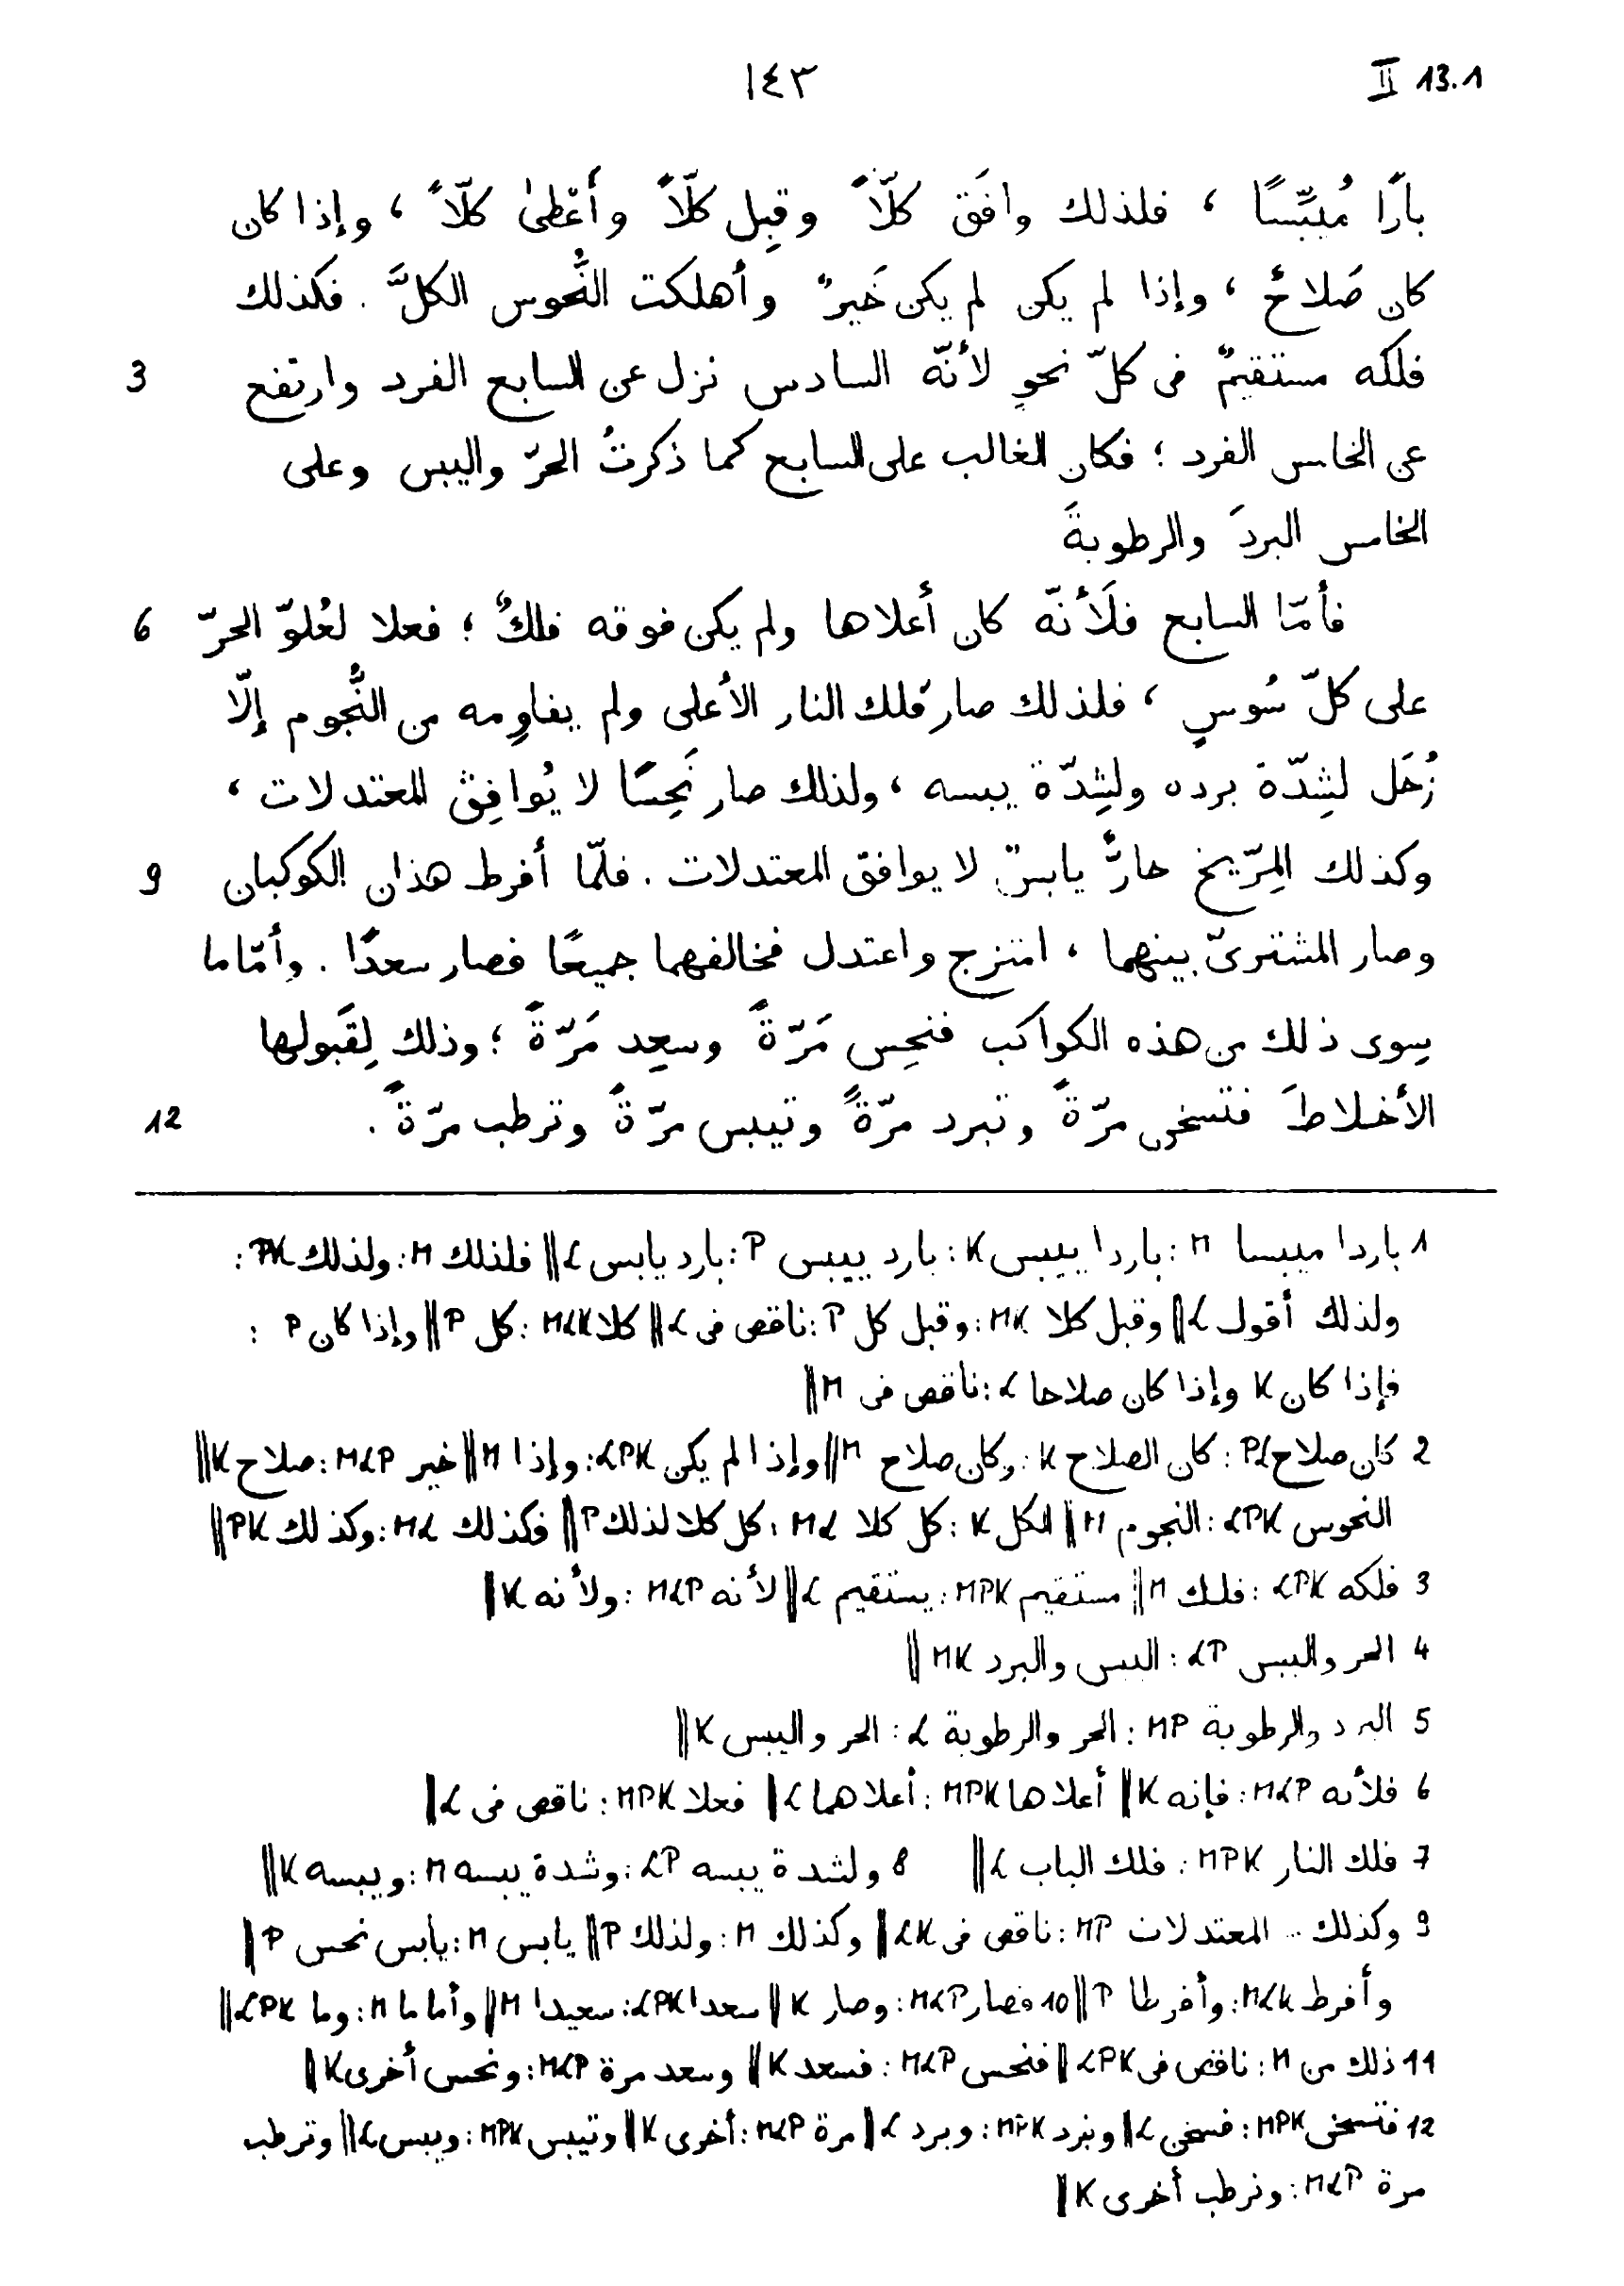 ١٤٣ II 13.1
بارًّا مُيَبِّسًا ، فلذلك وافَق كلّاً وقبِل كلّاً وأَعْطىٰ كلّاً ، وإذا كان
كان صَلاحٌ ، وإذا لم يكن لم يكن خَيرٌ وأهلكت النُّحوس الكلَّ . فكذلك
3 فلكه مستقيمٌ فى كلّ نحوٍ لأنّه السادس نزل عن السابع الفرد وارتفع
عن الخامس الفرد ؛ فكان الغالب على السابع كما ذكرتُ الحرّ واليبس وعلى
الخامس البردَ والرطوبةَ
6 فأمّا السابع فلَأنّه كان أعلاها ولم يكن فوقه فلكٌ ؛ فعلا لعُلوّ الحرّ
على كلّ سُوسٍ ، فلذلك صار فَلك النار الأعلى ولم يقاوِمه من النُّجوم إلّا
زُحَل لشِدّة برده ولشِدّة يبسه ، ولذلك صار نَحِسًا لا يُوافِق المعتدلات ،
9 وكذلك المِرّيخ حارٌّ يابسٌ لا يوافق المعتدلات . فلمّا أفرط هذان الكوكبان
وصار المشترىّ بينهما ، امتزج واعتدل فخالفهما جميعًا فصار سعدًا . وأمّا ما
سِوى ذلك من هذه الكواكب فنحِس مَرّةً وسعِد مَرّةً ؛ وذلك لِقَبولها
12 الأخلاطَ فتسخن مرّةً وتبرد مرّةً وتيبس مرّةً وترطب مرّةً .
1 باردا ميبسا M : باردا ييبس K : بارد ييبس P : بارد يابس L ‖ فلذلك M : ولذلك PK :
ولذلك أقول L ‖ وقبل كلا MK : وقبل كل P : ناقص فى L ‖ كلا MLK : كل P ‖ وإذا كان P :
فإذا كان K وإذا كان صلاحا L : ناقص فى M ‖
2 كان صلاح PL : كان الصلاح K : وكان صلاح M ‖ وإذا لم يكن LPK : وإذا M ‖ خير MLP : صلاح K ‖
النحوس LPK : النجوم M ‖ الكل K : كل كلا ML : كل كلا لذلك P ‖ فكذلك ML : وكذلك PK ‖
3 فلكه LPK : فلك M ‖ مستقيم MPK : يستقيم L ‖ لأنه MLP : ولأنه K ‖
4 الحر واليبس LP : اليبس والبرد MK ‖
5 البرد والرطوبة MP : الحر والرطوبة L : الحر واليبس K ‖
6 فلأنه MLP : فإنه K ‖ أعلاها MPK : أعلاهما L ‖ فعلا MPK : ناقص فى L ‖
7 فلك النار MPK : فلك الباب L ‖ 8 ولشدة يبسه LP : وشدة يبسه M : ويبسه K ‖
9 وكذلك .. المعتدلات MP : ناقص فى LK ‖ وكذلك M : ولذلك P ‖ يابس M : يابس نحس P ‖
وأفرط MLK : وأفرطا P ‖ 10 فصار MLP : وصار K ‖ سعدا LPK : سعيدا M ‖ وأما ما M : وما LPK ‖
11 ذلك من M : ناقص فى LPK ‖ فنحس MLP : فسعد K ‖ وسعد مرة MLP : ونحس أخرى K ‖
12 فتسخن MPK : فسخن L ‖ وتبرد MPK : وبرد L ‖ مرة MLP : أخرى K ‖ وتيبس MPK : ويبس L ‖ وترطب
مرة MLP : وترطب أخرى K ‖